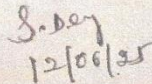 S. Dey
12/06/25